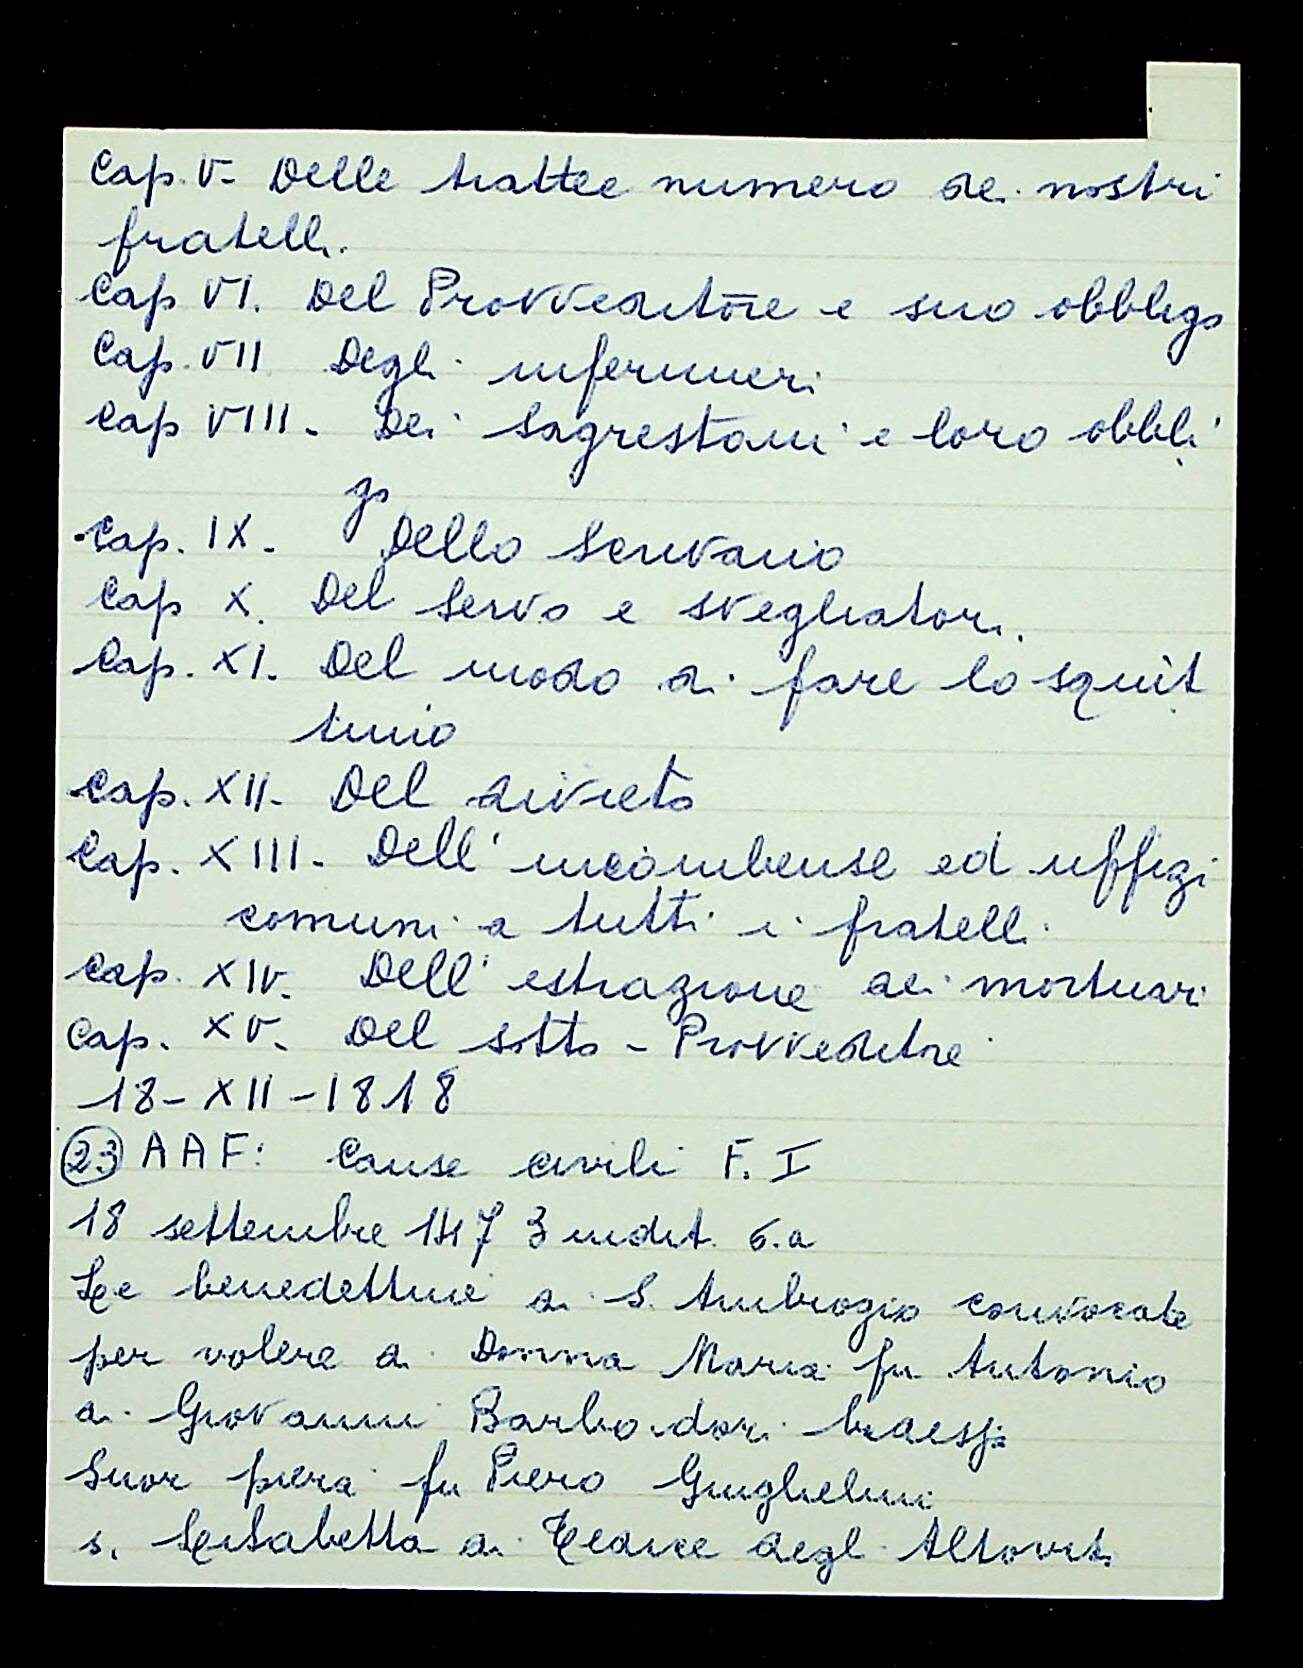 Cap. V- Delle trattee numero dei nostri
fratelli.
Cap VI. Del Provveditore e suo obbligo
Cap. VII Degli infermieri
Cap VIII. Dei Sagrestani e loro obbli
go
Cap. IX. Dello Scrivano
Cap X. Del Servo e svegliatori.
Cap. XI. Del modo di fare lo squit
tinio
Cap. XII. Del divieto
Cap. XIII. Dell' incombense ed uffizi
comuni a tutti i fratelli
Cap. XIV. Dell' estrazione dei mortuari
Cap. XV. Del sotto-Provveditore
18-XII-1818
23 AAF: Cause civili F. I
18 settembre 1473 indit. 6.a
Le benedettine di S. Ambrogio convocate
per volere di Donna Maria fu Antonio
di Giovanni Barbadori
Suor piera fu Piero Guglielmi
s. Lisabetta di degli Altoviti